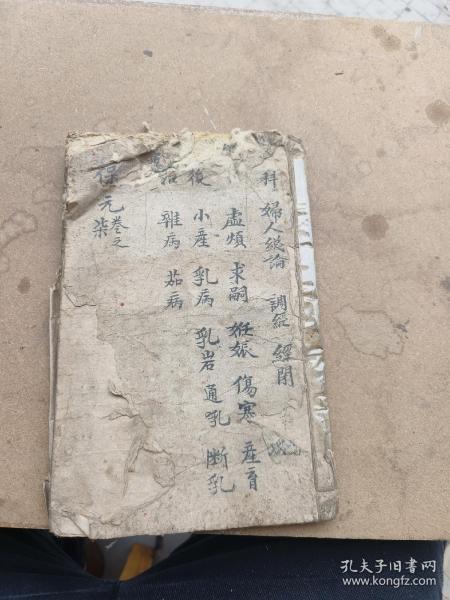 科 婦人總論 調經 經閉
虛煩 求嗣 姙娠 傷寒 產育
後 小產 乳病 乳岩 通乳 斷乳
雜病 茄病
保元 卷之柒
孔夫子旧书网
www.kongfz.com